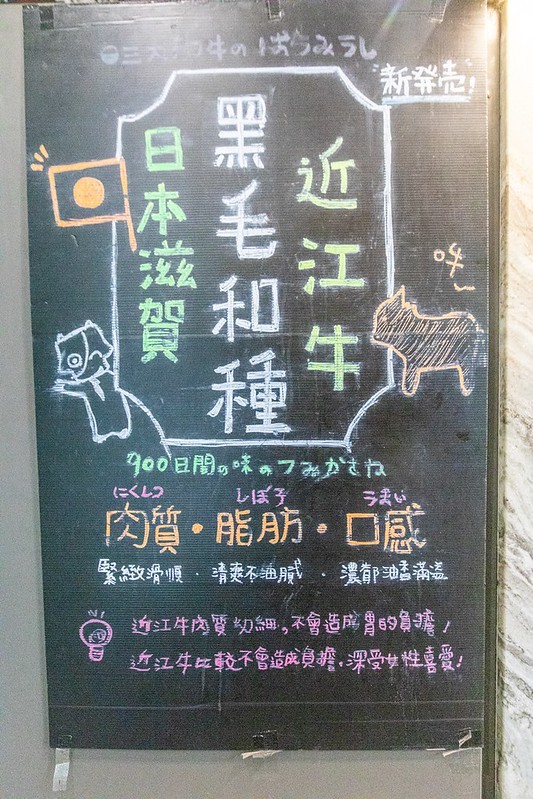 三大和牛の
"新発売"!
近江牛
黑毛和種
日本滋賀
哞~
900日間の味のつみかさね
にくしつ しぼう うまい
肉質・脂肪・口感
緊緻滑順・清爽不油膩・濃郁油香滿溢
近江牛肉質幼細,不會造成胃的負擔!
近江牛比較不會造成負擔,深受女性喜愛!